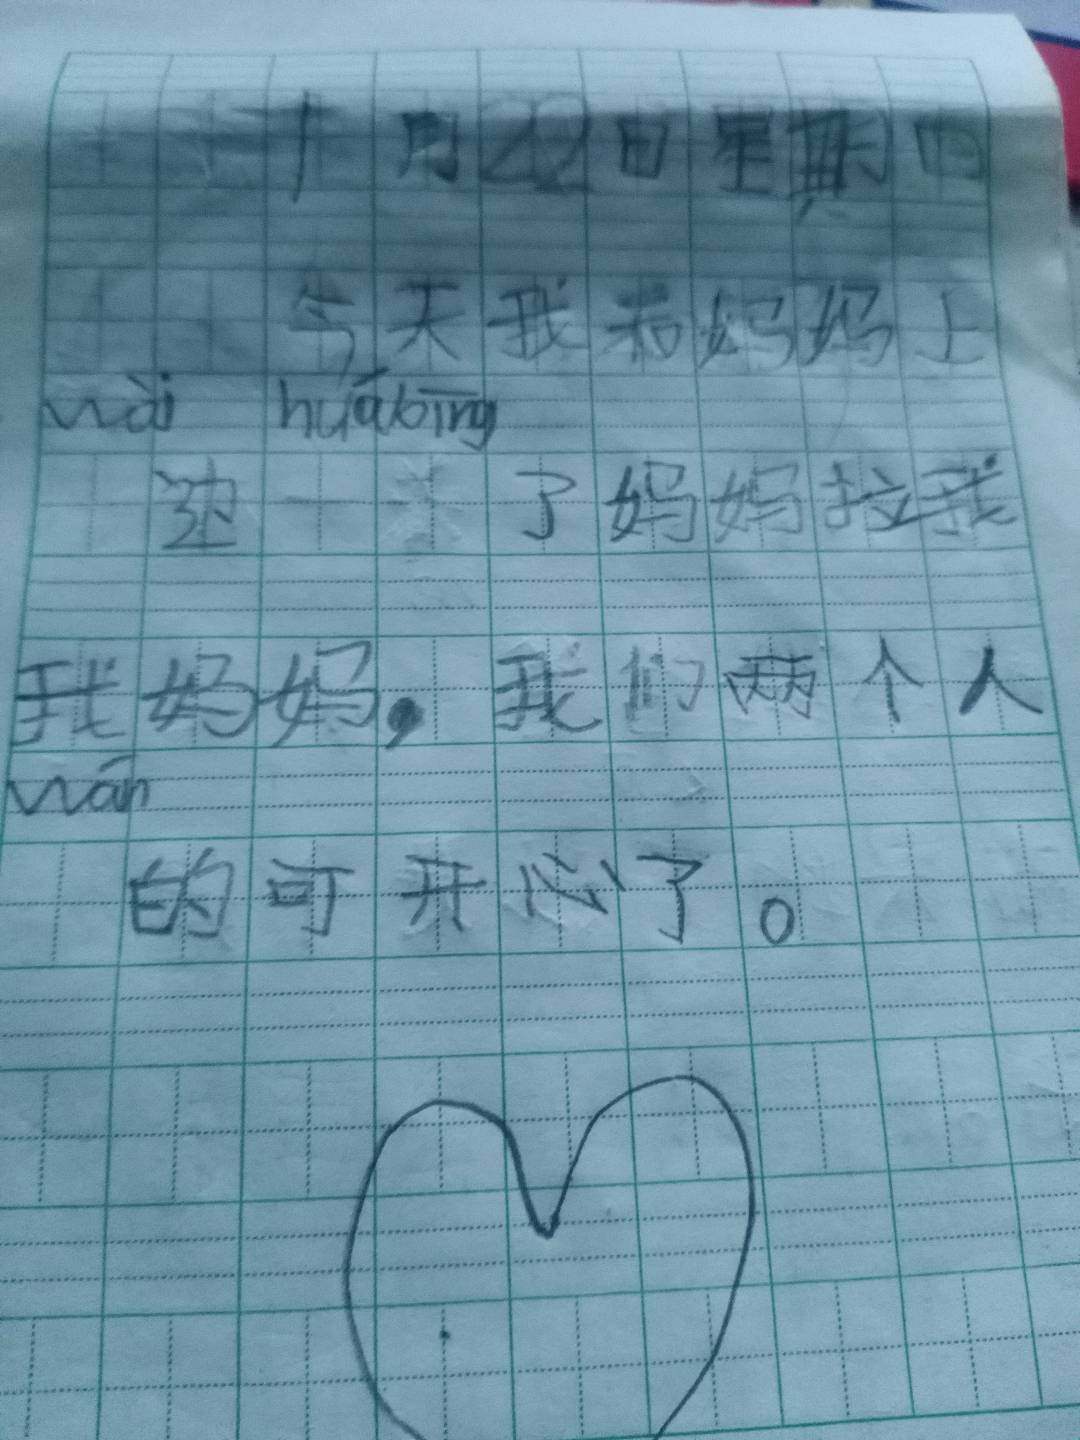 十月22日星期四
今天我和妈妈上
wài huábīng
边一 了妈妈拉我
我妈妈，我们两个人
wán
的可开心了。